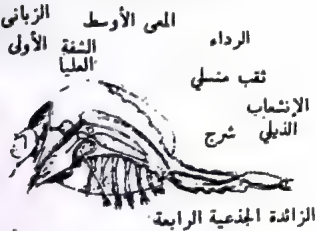 الزبانى
الأولى
الشفة
العليا
المعى الأوسط
الرداء
ثقب منسلي
الإنشعاب
الذيلي
شرج
الزائدة الجذعية الرابعة